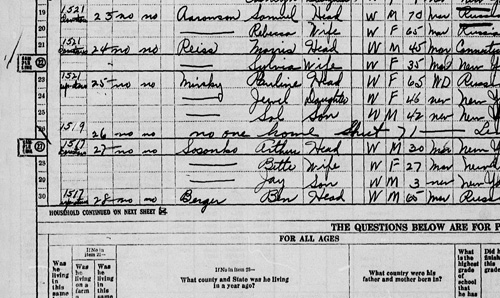 19 1521 23 no no Aaronson Samuel Head W M 70 mar Russia
20 Rebecca Wife W F 65 mar Russia
21 1521 24 no no Reiss Morris Head W M 45 mar
22 Sylvia Wife W F 35 mar New
23 1521 upstairs 25 no no Minsky Pauline Head W F 65 WD Russ
24 Jewel Daughter W F 46 nev New
25 Sol Son W M 42 nev New
26 1519 26 no no no one home Sheet 71
27 1517 27 no no Arthur Head W M 30 mar New
28 Bette Wife W F 27 mar
29 Jay Son W M 3 nev New
30 1517 upstairs 28 no no Berger Ben Head W M 65 mar Russ
HOUSEHOLD CONTINUED ON NEXT SHEET
THE QUESTIONS BELOW ARE FOR P
FOR ALL AGES
Was he living in this same
If No in Item 21—
Was he living on a farm a
Was he living in this same
If No in Item 23—
What county and State was he living in a year ago?
What country were his father and mother born in?
What is the highest grade of school that he has
Did h finish this grade